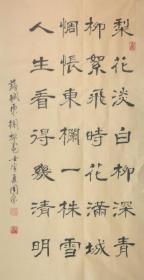 梨花淡白柳深青
柳絮飛時花滿城
惆悵東欄一株雪
人生看得幾清明
蘇軾東欄梨